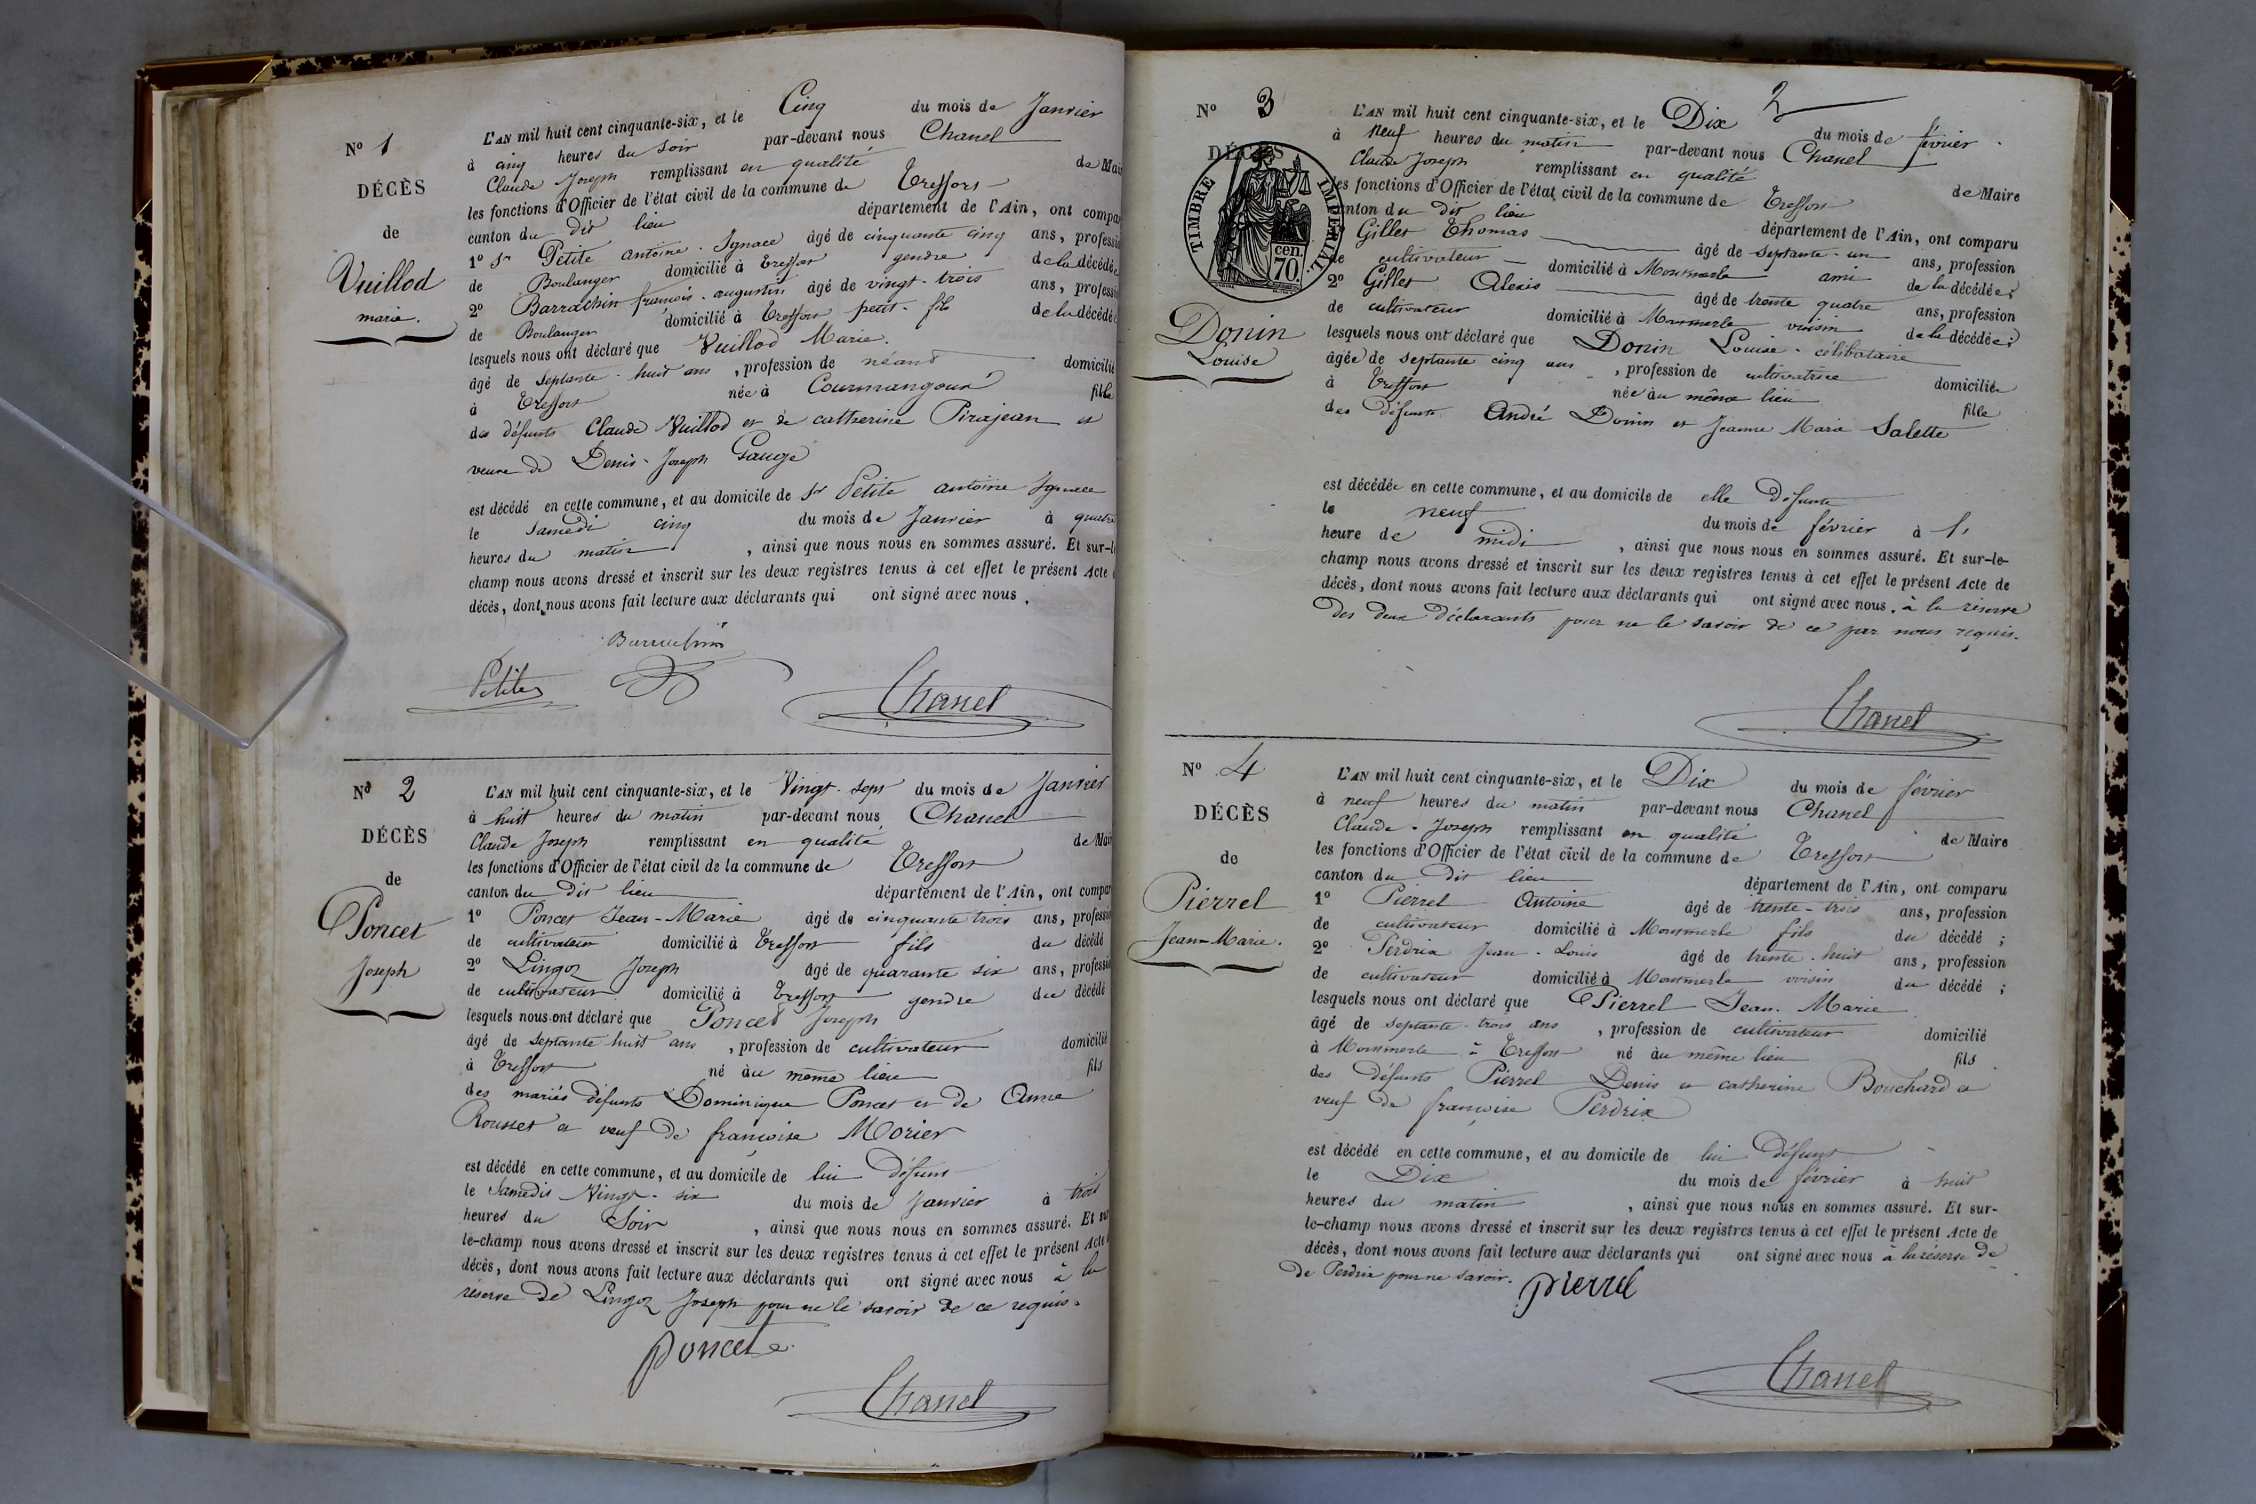 Nº 1
DÉCÈS
de
Vuillod
marie.
L'AN mil huit cent cinquante-six, et le Cinq du mois de Janvier
à cinq heures du soir par-devant nous Chanel
Claude Joseph remplissant en qualité de Mai
les fonctions d'Officier de l'état civil de la commune de Treffort
canton du dit lieu département de l'Ain, ont compar
1º Sr Petite antoine Ignace âgé de cinquante cinq ans, professio
de Boulanger domicilié à treffort gendre de la décédée
2º Barrachin françois-augustin âgé de vingt-trois ans, professio
de Boulanger domicilié à Treffort petit-fils de la décédée
lesquels nous ont déclaré que Vuillod Marie.
âgé de Septante-huit ans, profession de néant domicilié
à Treffort née à Courmangoux fille
des défunts Claude Vuillod et de catherine Pirajean et
veuve de Denis-Joseph Gauge
est décédé en cette commune, et au domicile de Sr Petite antoine Ignace
le samedi cinq du mois de Janvier à quatre
heures du matin, ainsi que nous nous en sommes assuré. Et sur-le
champ nous avons dressé et inscrit sur les deux registres tenus à cet effet le présent Acte
décès, dont nous avons fait lecture aux déclarants qui ont signé avec nous.
Barrachin
Petite
Chanel
Nº 2
DÉCÈS
de
Poncet
Joseph
L'AN mil huit cent cinquante-six, et le Vingt-sept du mois de Janvier
à huit heures du matin par-devant nous Chanel
Claude Joseph remplissant en qualité de Mai
les fonctions d'Officier de l'état civil de la commune de Treffort
canton du dit lieu département de l'Ain, ont compar
1º Poncet Jean-Marie âgé de cinquante trois ans, professio
de cultivateur domicilié à Treffort fils du décédé
2º Lingoz Joseph âgé de quarante six ans, professio
de cultivateur domicilié à Treffort gendre du décédé
lesquels nous ont déclaré que Poncet Joseph
âgé de septante huit ans, profession de cultivateur domicilié
à Treffort né au même lieu fils
des mariés défunts Dominique Poncet et de Anne
Rousset et veuf de françoise Morier
est décédé en cette commune, et au domicile de lui défunt
le Samedis Vingt-six du mois de Janvier à trois
heures du Soir, ainsi que nous nous en sommes assuré. Et sur
le-champ nous avons dressé et inscrit sur les deux registres tenus à cet effet le présent Acte
décès, dont nous avons fait lecture aux déclarants qui ont signé avec nous à la
réserve de Lingoz Joseph pour ne le savoir de ce requis.
Poncet
Chanel
2
Nº 3
DÉCÈS
TIMBRE IMPÉRIAL
cen.
70
Donin
Louise
L'AN mil huit cent cinquante-six, et le Dix du mois de février.
à neuf heures du matin par-devant nous Chanel
Claude Joseph remplissant en qualité de Maire
les fonctions d'Officier de l'état civil de la commune de Treffort
canton du dit lieu département de l'Ain, ont comparu
Gillet Thomas âgé de septante-un ans, profession
de cultivateur domicilié à Montmerle ami de la décédée;
2º Gillet Alexis âgé de trente quatre ans, profession
de cultivateur domicilié à Montmerle voisin de la décédée;
lesquels nous ont déclaré que Donin Louise-célibataire
âgée de septante cinq ans, profession de cultivatrice domiciliée
à Treffort née au même lieu fille
des défunts André Donin et Jeanne Marie Salette
est décédée en cette commune, et au domicile de elle défunte
le neuf du mois de février à 1
heure de midi, ainsi que nous nous en sommes assuré. Et sur-le-
champ nous avons dressé et inscrit sur les deux registres tenus à cet effet le présent Acte de
décès, dont nous avons fait lecture aux déclarants qui ont signé avec nous. à la réserve
des deux déclarants pour ne le savoir de ce par nous requis.
Chanel
Nº 4
DÉCÈS
de
Pierrel
Jean-Marie.
L'AN mil huit cent cinquante-six, et le Dix du mois de février
à neuf heures du matin par-devant nous Chanel
Claude-Joseph remplissant en qualité de Maire
les fonctions d'Officier de l'état civil de la commune de Treffort
canton du dit lieu département de l'Ain, ont comparu
1º Pierrel Antoine âgé de trente-trois ans, profession
de cultivateur domicilié à Montmerle fils du décédé;
2º Perdrix Jean-Louis âgé de trente-huit ans, profession
de cultivateur domicilié à Montmerle voisin du décédé;
lesquels nous ont déclaré que Pierrel Jean-Marie
âgé de septante-trois ans, profession de cultivateur domicilié
à Montmerle à Treffort né au même lieu fils
des défunts Pierrel Denis et catherine Bouchard et
veuf de françoise Perdrix
est décédé en cette commune, et au domicile de lui défunt
le Dix du mois de février à huit
heures du matin, ainsi que nous nous en sommes assuré. Et sur-
le-champ nous avons dressé et inscrit sur les deux registres tenus à cet effet le présent Acte de
décès, dont nous avons fait lecture aux déclarants qui ont signé avec nous à la réserve de
de Perdrix pour ne savoir.
pierrel
Chanel